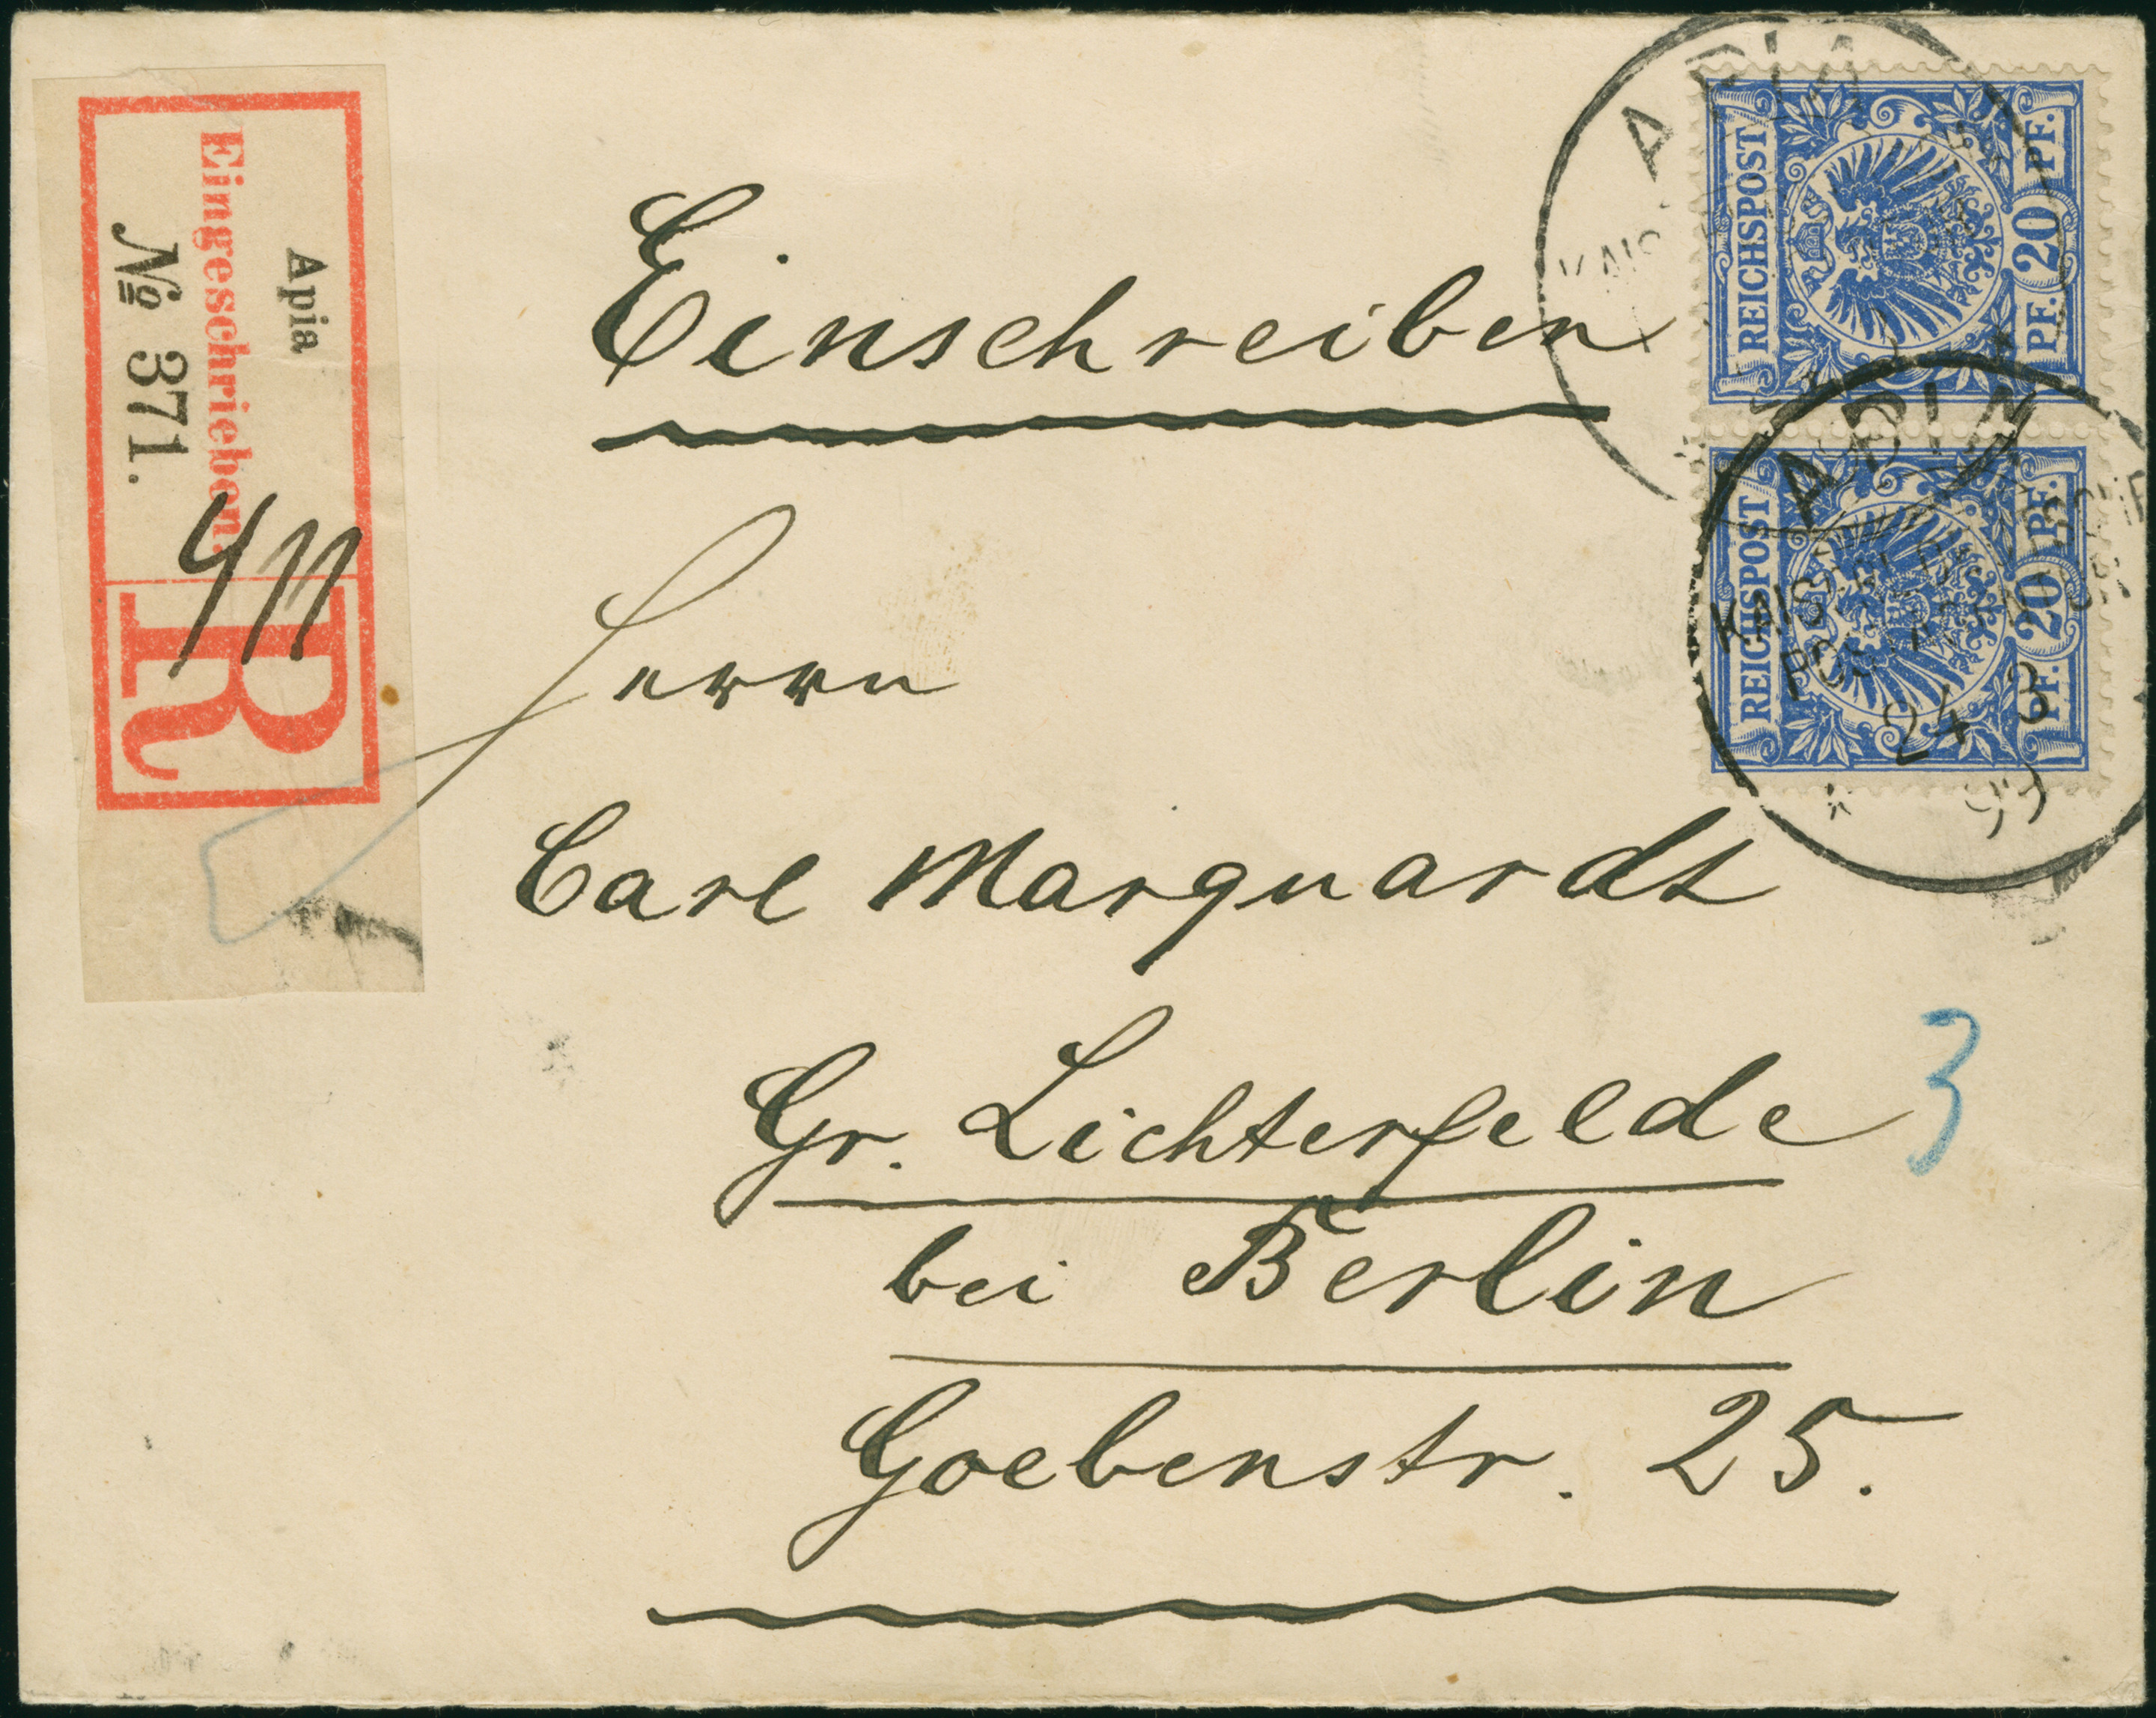 Apia
Eingeschrieben.
№ 371.
R
Einschreiben
Herrn
Carl Marquardt
Gr. Lichterfelde
3
bei Berlin
Goebenstr. 25.
APIA
REICHSPOST
PF. 20 PF.
APIA
KAISERL. DEUTSCHE
REICHSPOST
PF. 20 PF.
24 3